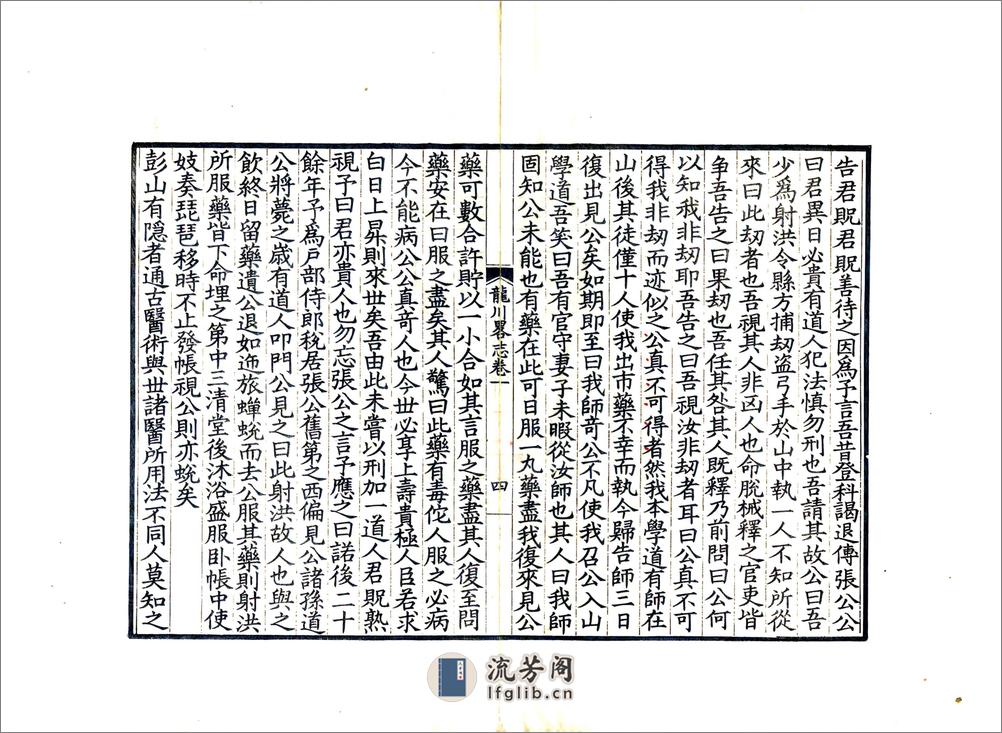 告君貺君貺善待之因爲予言吾昔登科謁退傳張公公
曰君異日必貴有道人犯法慎勿刑也吾請其故公曰吾
少爲射洪令縣方捕刼盜弓手於山中執一人不知所從
來曰此刼者也吾視其人非凶人也命脫械釋之官吏皆
争吾告之曰果刼也吾任其咎其人既釋乃前問曰公何
以知我非刼耶吾告之曰吾視汝非刼者耳曰公真不可
得我非刼而迹似之公真不可得者然我本學道有師在
山後其徒僅十人使我出市藥不幸而執今歸告師三日
復出見公矣如期即至曰我師奇公不凡使我召公入山
學道吾笑曰吾有官守妻子未暇從汝師也其人曰我師
固知公未能也有藥在此可日服一丸藥盡我復來見公
龍川畧志卷一
四
藥可數合許貯以一小合如其言服之藥盡其人復至問
藥安在曰服之盡矣其人驚曰此藥有毒佗人服之必病
今不能病公公真竒人也今世必享上壽貴極人臣若求
白日上昇則來世矣吾由此未嘗以刑加一道人君貺熟
視予曰君亦貴人也勿忘張公之言予應之曰諾後二十
餘年予爲戶部侍郎稅居張公舊第之西偏見公諸孫道
公將薨之歲有道人叩門公見之曰此射洪故人也與之
飲終日留藥遺公退如逆旅蟬蛻而去公服其藥則射洪
所服藥皆下命埋之第中三清堂後沐浴盛服卧帳中使
妓奏琵琶移時不止發帳視公則亦蛻矣
彭山有隱者通古醫術與世諸醫所用法不同人莫知之
流芳阁
lfglib.cn